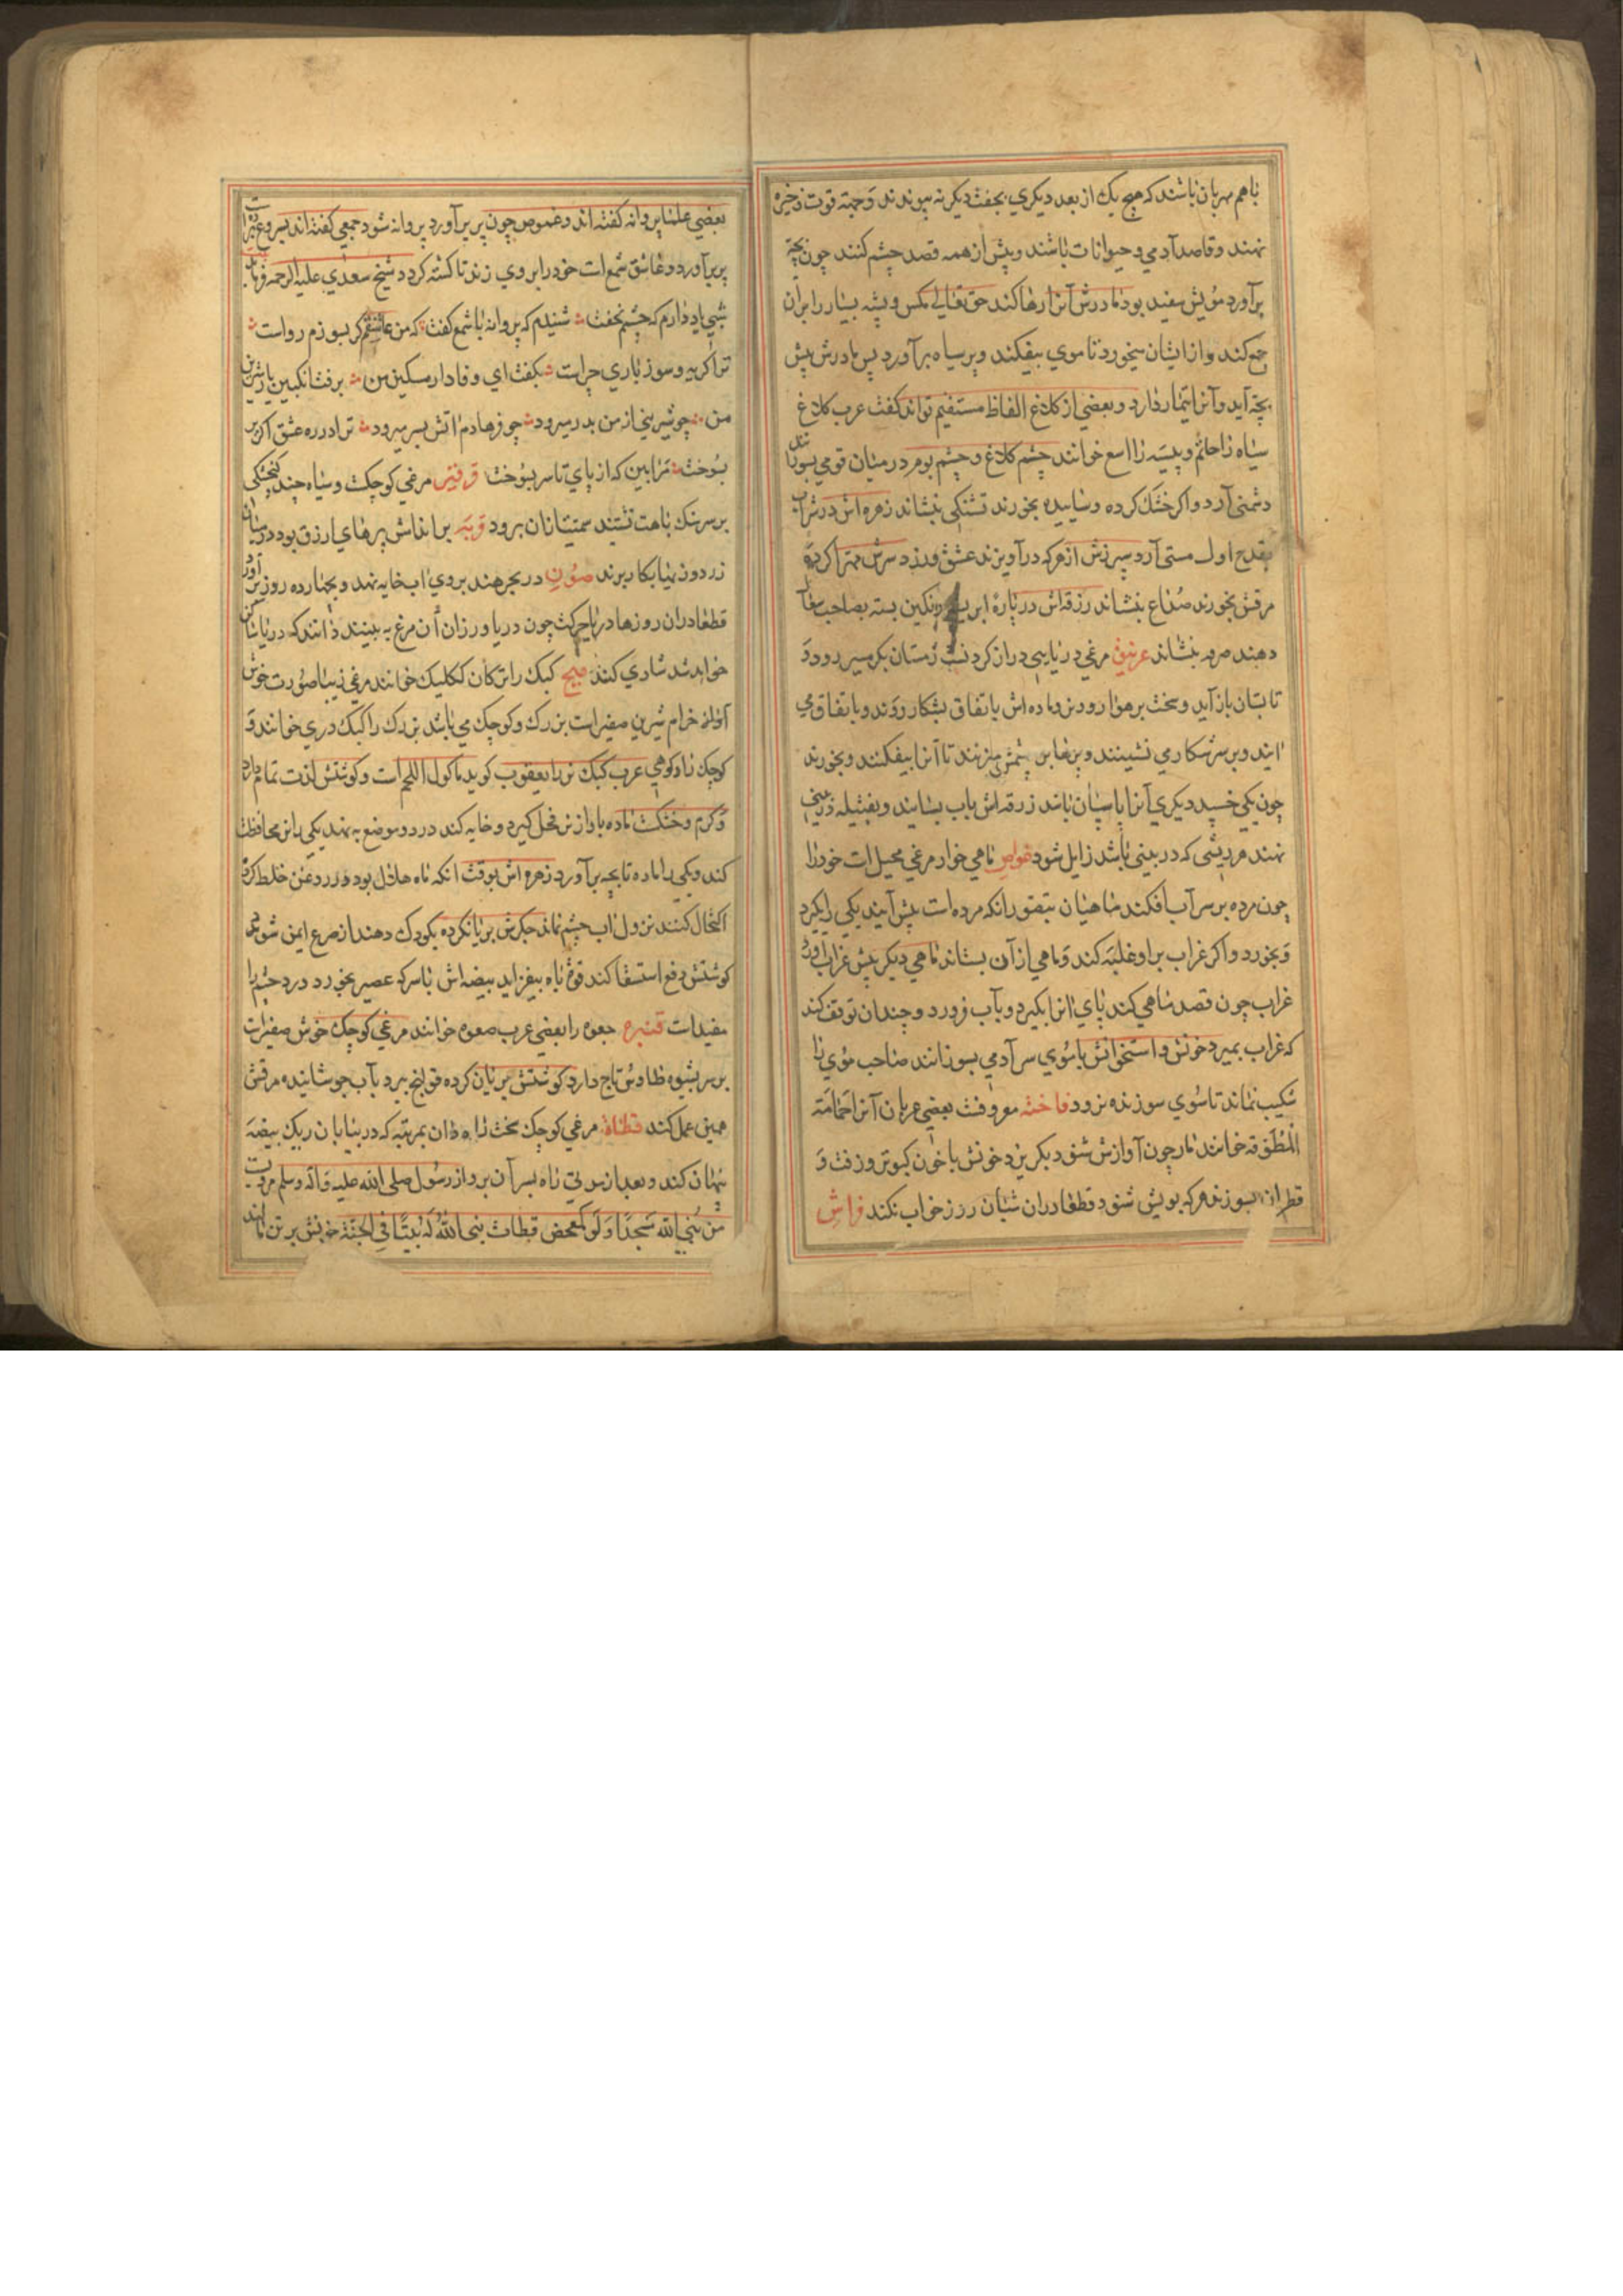 باهم مهربان باشند که هیچ یک از بعد دیگری بجفت دیگر نه پیوندند و جمله قوت ذخیره
نهند و قاصد آدمی و حیوانات باشند و پیش از همه قصد چشم کنند چون بچه
برآورد مویش سفید بود مادرش آنرا رها کند حق تعالی مکس و پشه بسیار را بران
جمع کند و از ایشان میخورد تا موی بیفکند و پر سیاه برآورد پس مادرش پیش
بچه آید و آنرا تیمار دارد و بعضی از کلاغ الفاظ مستقیم تواند گفت عرب کلاغ
سیاه را حاتم و پیسه را خوانند چشم کلاغ و چشم بوم در میان قومی بسوزانند
دشمنی آرد و اگر خشک کرده و ساییده بخورند تشنگی بنشاند زهره اش در شراب
بقدح اول مستی آرد سپرزش از هر که درآویزند عشق ورزد سرش مهرا کرده
مرقش بخورند صداع بنشاند زرقه اش در پاره رنکین بسته بصاحب سعال
دهند سرفه بنشاند غرنیق مرغی دریایی دراز کردنست زمستان بکرمسیر رود و
تابستان باز آید و سخت بر هوا رود نر و ماده اش باتفاق بشکار روند و باتفاق می
آیند و بر سر شکار می نشینند و پرها بر چشمش میزنند تا آنرا بیفکنند و بخورند
چون یکی خسپد دیگری آنرا پاسبان باشد زرقه اش باب بسایند و بفتیله در بینی
نهند هر ریشی که در بینی باشد زایل شود غواص ماهی خوار مرغی محیل است خود را
چون مرده بر سر آب افکند ماهیان بتصور آنکه مرده است پیش آیند یکی را بگیرد
و بخورد و اگر غراب بر او غلبه کند و ماهی از آن بستاند ماهی دیگر پیش غراب آورد
غراب چون قصد ماهی کند پای آنرا بگیرد و بآب فرو رد و چندان توقف کند
که غراب بمیرد خونش و استخوانش با موی سر آدمی بسوزانند صاحب موی را
شکیب نماند تا سوی سوزنده نرود فاخته معروفست بعضی عربان آنرا حمامة
المطوقه خوانند مار چون آوازش شنود بگریزد خونش با خون کبوتر و زفت و
قطران بسوزند هر که بویش شنود قطعا دران شبان روز خواب نکند فراش
بعضی علما پروانه گفته اند و غموص چون پر برآورد پروانه شود جمعی گفته اند
پر برآورد و عاشق شمع است خود را بر وی زند تا کشته گردد شیخ سعدی علیه الرحمه فرماید
شبی یاد دارم که چشمم نخفت شنیدم که پروانه با شمع گفت که من عاشقم گر بسوزم رواست
ترا گریه و سوز باری چراست بگفت ای وفادار مسکین من برفت انگبین یار شیرین
من چو شیرینی از من بدر میرود چو فرهادم آتش بسر میرود ترا در ره عشق اگر پر
بسوخت مرا بین که از پای تا سر بسوخت مرغی کوچک و سیاه چند کنجشکی
بر سر سنک باهت نشیند بر اندامش پرهای ازرق بود در
زردوزیها بکار برند در بحر هند بر وی آب خایه نهد و بچهارده روز برآورد
قطعا دران روزها دریا حرکت چون دریا ورزان آن مرغ به بینند دانند که دریا ساکن
خواهد شد شادی کنند قبج کبک را ترکان ککلیک خوانند مرغی زیبا صورت خوش
آواز خرام شیرین صفیرست بزرک و کوچک می باشد بزرک را کبک دری خوانند و
کوچک را کوهی عرب کبک نر را یعقوب گوید ماکول اللحم است و گوشتش لذت تمام دارد
و گرم و خشکست ماده باواز نر فحل گیرد و خایه کند در دو موضع به نهد یکی را نر محافظت
کند و یکی را ماده تا بچه برآورد زهره اش بوقت آنکه ماه بود خلط کرده
اکتحال کنند نزول آب چشم نماند جگرش بریان کرده بکودک دهند از صرع ایمن شود
گوشتش دفع استسقا کند قوة باه بیفزاید بیضه اش با سرکه عصیر بخورد درد چشم را
مفیدست قنبره جعوه را بعضی عرب صعوه خوانند مرغی کوچک خوش صفیرست
بر سر بشیوه طاوس تاج دارد گوشتش بریان کرده قولنج ببرد بآب جوشانیده مرقش
همین عمل کند قطاة مرغی کوچک سخت بمرتبه که در بیابان ریک بیضه
پنهان کند و بعد از مدتی راه بسر آن برد از رسول صلی الله علیه و آله و سلم مرویست
من بنی لله مسجدا و لو کمفحص قطات بنی الله له بیتا فی الجنة خونش بر تن مالند